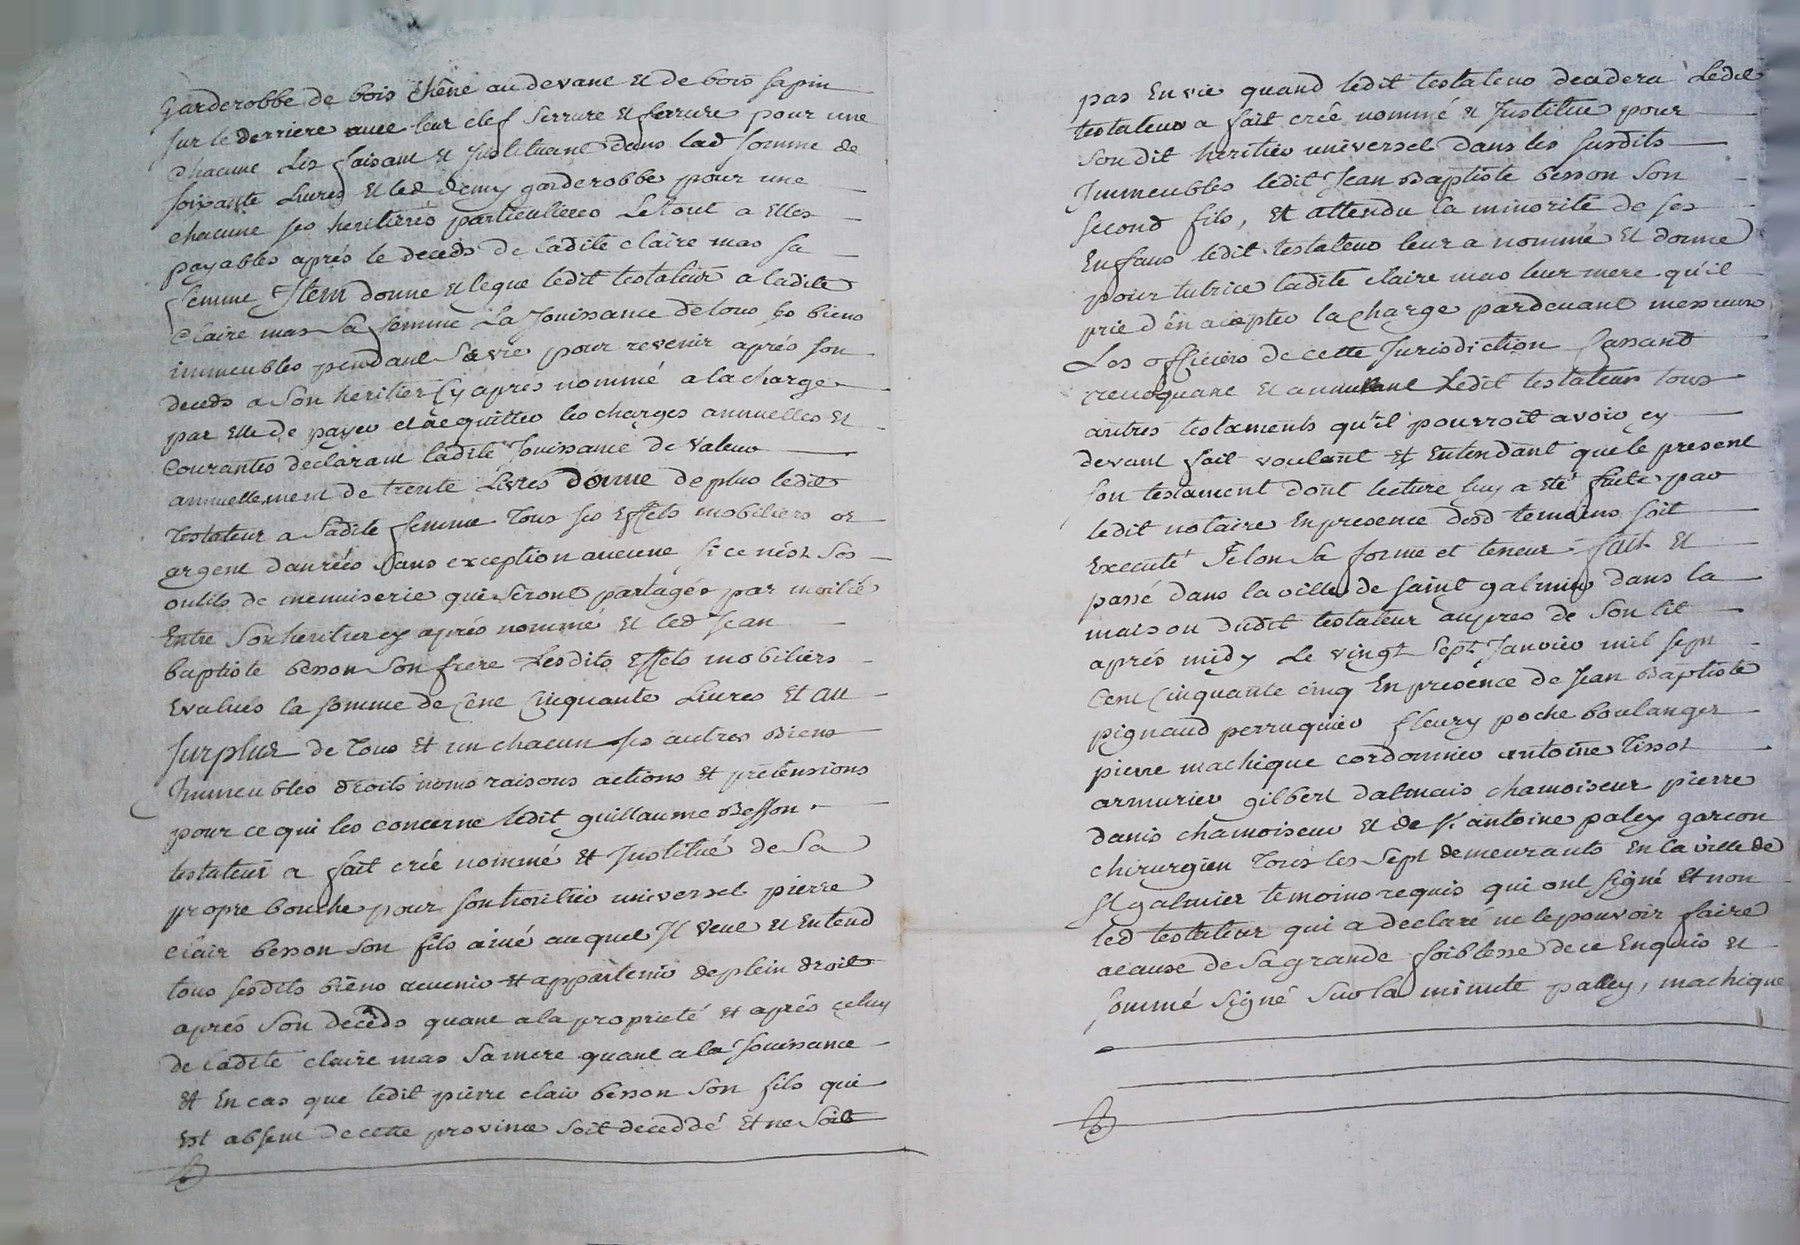 Garderobbe de bois chêne au devant et de bois sapin
sur le derriere avec leur clef serrure et ferrure pour une
chacune les faisant et Instituant dans lad somme de
soixante Livres et led demy garderobbe pour une
chacune ses heritieres particulieres Le tout a Elles
payables aprés le deceds de Ladite claire mas sa
femme Item donne et legue ledit testateur a ladite
Claire mas sa femme La Jouissance de tous ses biens
immeubles pendant sa vie pour revenir aprés son
deceds a son heritier Cy apres nommé a la charge
par Elle de payer et acquitter les charges annuelles et
Courantes declarant ladite Jouissance de valeur
annuellement de trente Livres donne de plus ledit
testateur a sadite femme tous ses Effets mobiliers or
argent danrées sans exception aucune si ce nést ses
outils de menuiserie qui seront partagés par moitié
Entre son heritier cy aprés nommé et led Jean
baptiste besson son frere Lesdits Effets mobiliers
Evalués la somme de Cent Cinquante Livres Et au
surplus de tous et un chacun ses autres Biens
Immeubles droits noms raisons actions et prétensions
pour ce qui les concerne ledit guillaume Besson
testateur a fait créé nommé et Institué de sa
propre bouche pour son heritier universel pierre
clair besson son fils ainé auquel Il veut et Entend
tous sesdits biens avenir et appartenir de plein droit
aprés son deceds quant a la proprieté et aprés celuy
de Ladite claire mas sa mere quant a la Jouissance
et En cas que ledit pierre clair besson son fils qui
Est absent de cette province soit deceddé et ne soit
pas En vie quand ledit testateur decedera Ledit
testateur a fait créé nommé et Institué pour
son dit heritier universel dans les susdits
Immeubles ledit Jean Baptiste besson son
second fils, et attendu la minorité de ses
Enfans ledit testateur leur a nommé et donné
pour tutrice ladite claire mas leur mere qu'il
prie d'én accepter la charge pardevant messieurs
Les officiers de cette Jurisdiction Cassant
revoquant et annullant Ledit testateur tous
autres testaments qu'il pourroit avoir cy
devant fait voulant et Entendant que le present
son testament dont lecture luy a été faite par
ledit notaire En presence desd temoins soit
Executé selon sa forme et teneur fait et
passé dans la ville de saint galmier dans la
maison dudit testateur aupres de son lit
aprés midy Le vingt sept Janvier mil sept
Cent Cinquante cinq En presence de Jean Baptiste
pignaud perruquier fleury poche boulanger
pierre machique cordonnier antoine tissot
armurier gilbert dalmais chamoiseur pierre
danis chamoiseur et de sr antoine paley garcon
chirurgien tous les sept demeurants En la ville de
st galmier temoins requis qui ont signé et non
led testateur qui a declaré ne le pouvoir faire
a cause de sa grande foiblesse de ce Enquis et
sommé signé sur la minute palley, machique